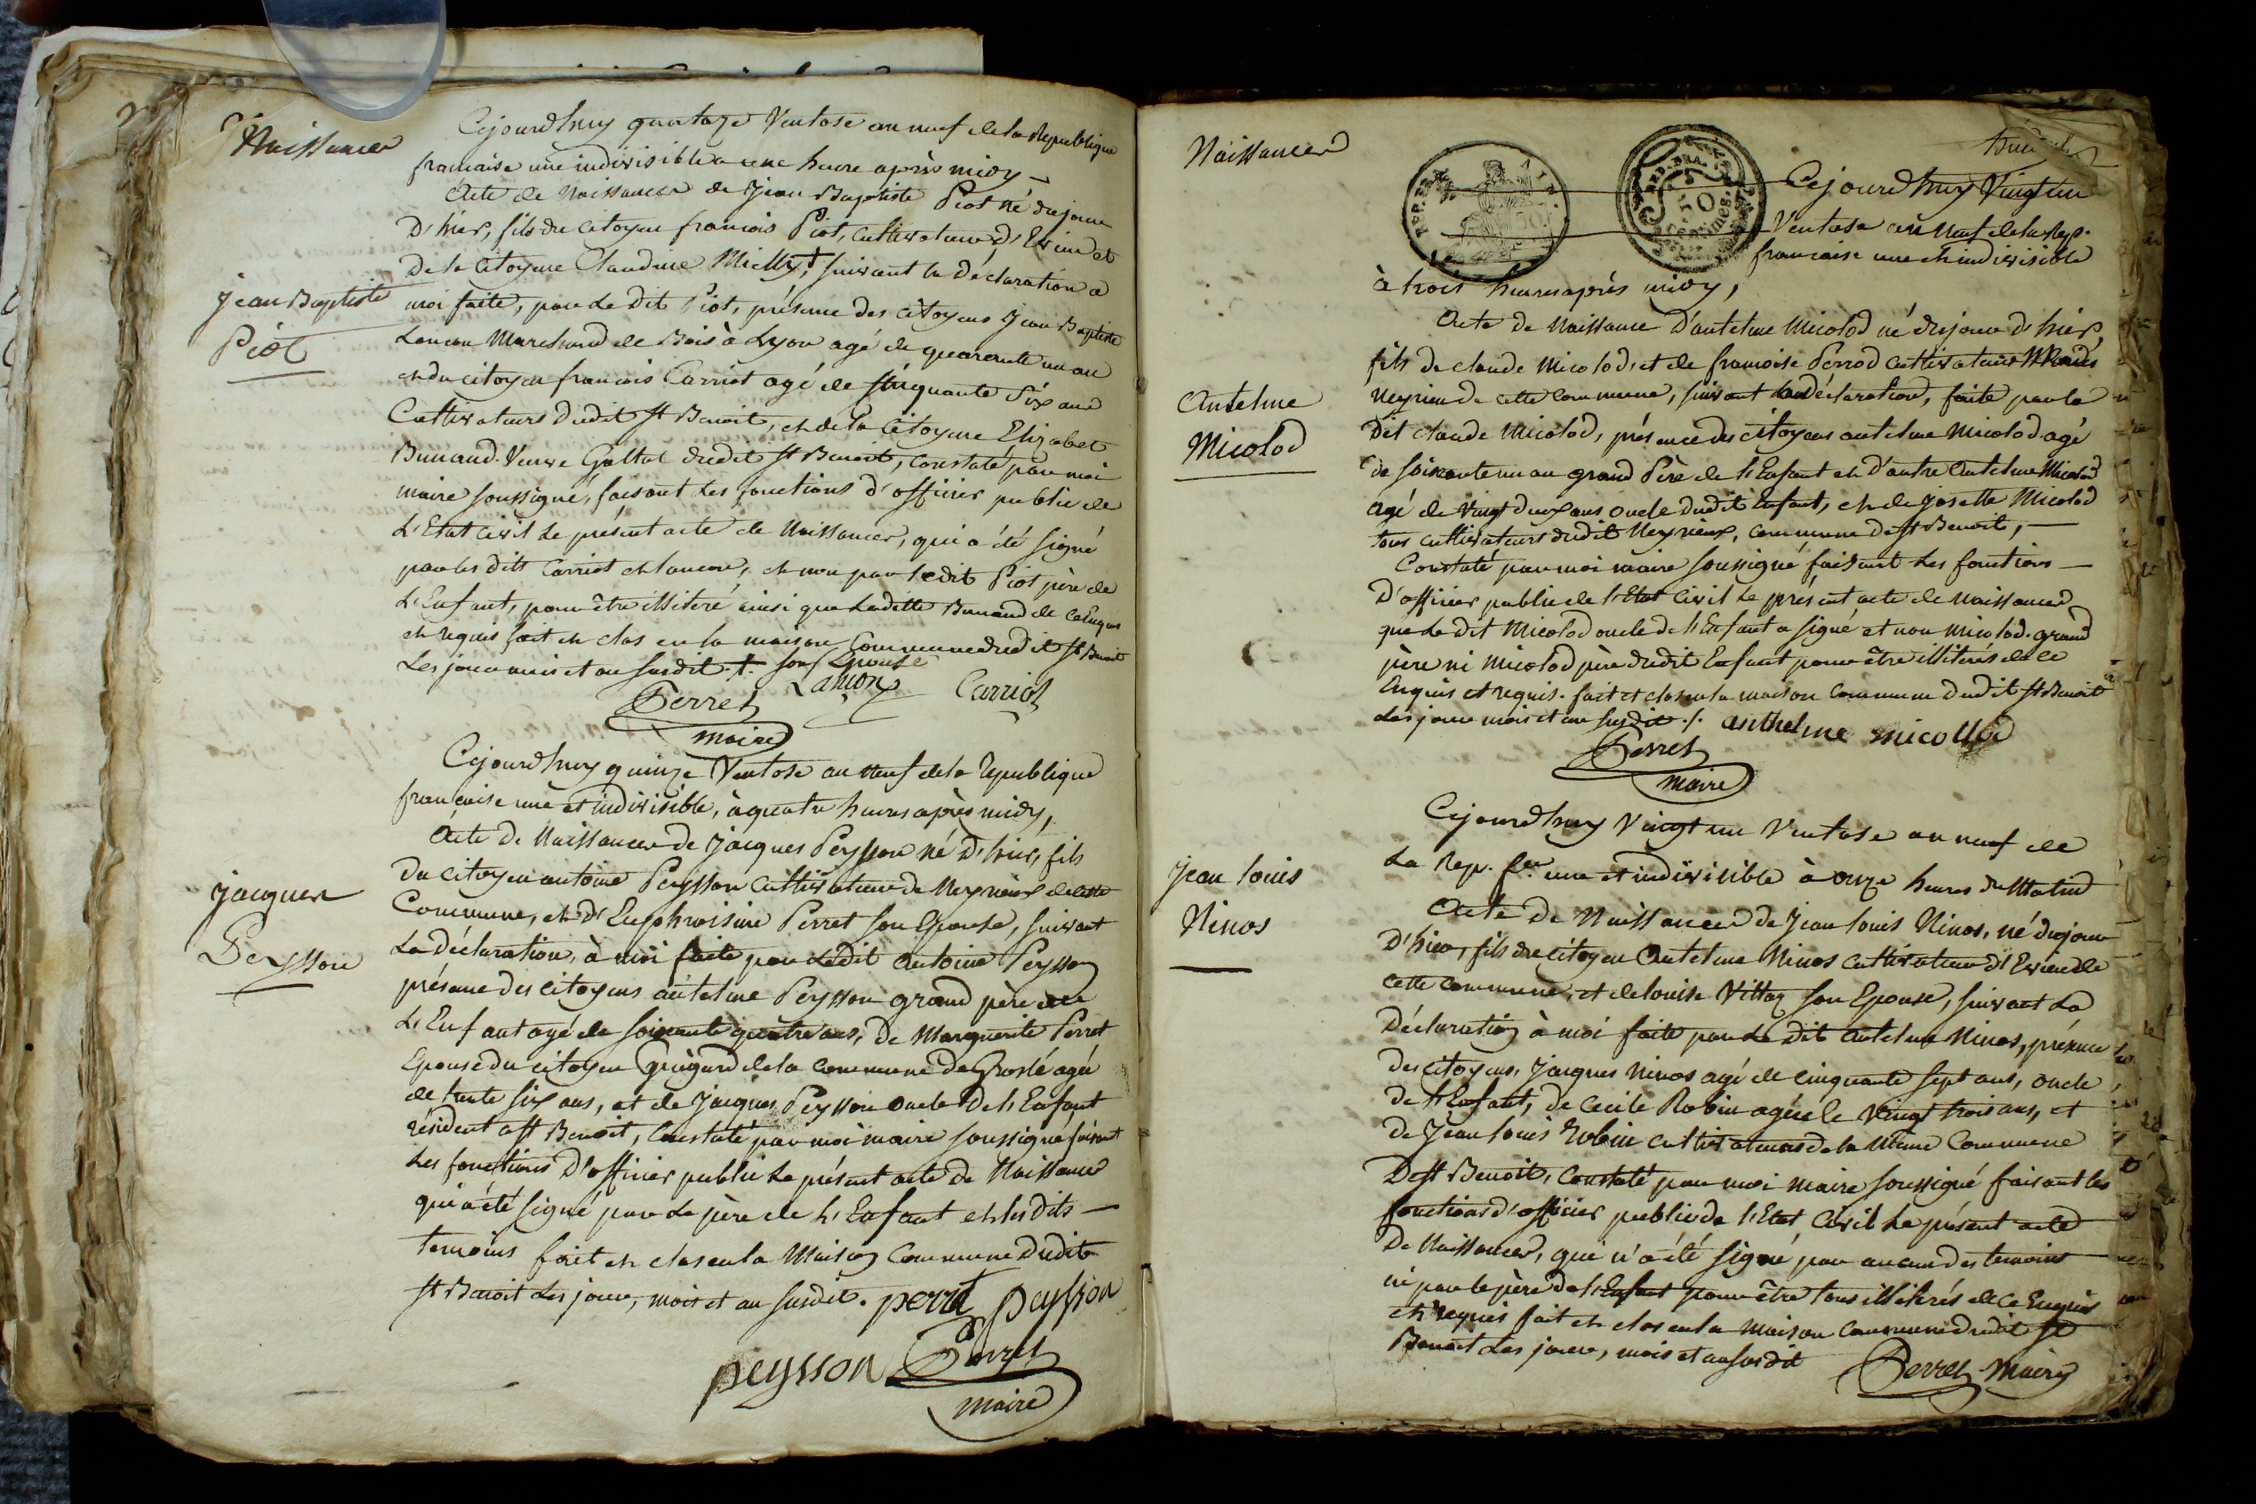 Naissances
Cejourdhuy quatorze Ventose an neuf de la Republique
francaise une indivisible a une heure après midy —
Acte de Naissance de Jean Baptiste Piot né du jour
D'hier, fils du citoyen francois Piot, cultivateur d'Evieu et
De la Citoyenne Claudine Mielly + suivant la Déclaration a
Jean Baptiste
Piot
moi faite, par Le Dit Piot, présence des citoyens Jean Baptiste
Marchand de Bois à Lyon agé de quarente un an
et du citoyen francois Carriot agé de sinquante Six ans
Cultivateurs dudit St Benoit, et de la Citoyenne Elizabet
Bunand Veuve dudit St Benoit, Constaté par moi
maire soussigné, faisant les fonctions d'officier public de
L'Etat Civil Le présent acte de Naissance, qui a été Signé
par les dits Carriot et et non par ledit Piot père de
L'Enfant, pour être illiteré ainsi que Laditte Bunand de ce Enquis
et requis fait et clos en la maison Commune dudit St Benoit
Les jour mois et an susdit + son Epouse
Perret Carriot
maire
Cejourdhuy quinze Ventose an neuf de la Republique
francaise une et indivisible, à quatre heures après midy,
Acte de Naissance de Jacques Peysson né D'hier, fils
Du citoyen antoine Peysson cultivateur de Meyrieux de cette
Jacques
Peysson
Commune, et D'Euphroisine Perret son Epouse, suivant
La Déclaration, à moi faite par Ledit antoine Peysson
présence des citoyens antelme Peysson grand père de
L'Enfant agé de soixante quatre ans, De Marguerite Perret
Epouse du citoyen de la commune De Groslé agée
de trente six ans, et de Jacques Peysson oncle De L'Enfant
résident a St Benoit, Constaté par moi maire soussigné faisant
Les fonctions D'officier public Le présent acte De Naissance
qui a été signé par Le père de L'Enfant et les dits —
temoins fait et clos en la Maison Commune Dudit
St Benoit Les jour, mois et an susdit. perret peysson
peysson Perret
maire
Naissances
Cejourdhuy Vingt un
Ventose an neuf de la Rep.
francaise une et indivisible
à trois heures après midy,
Acte de Naissance D'antelme Micolod né du jour d'hier,
fils de claude Micolod, et de francoise Perrod cultivateurs
Antelme
Micolod
Meyrieu de cette commune, suivant La déclaration, faite par le
Dit claude Micolod, présence des citoyens antelme Micolod agé
de soixante un an grand Père de L'Enfant et d'autre Antelme Micolod
agé de vingt deux ans oncle dudit Enfant, et de Josette Micolod
tous cultivateurs dudit Meyrieux, commune de St Benoit, —
Constaté par moi maire soussigné faisant Les fonctions —
D'officier public de l'Etat Civil Le présent acte de Naissance
que Le dit Micolod oncle de L'Enfant a signé et non Micolod grand
père ni Micolod père dudit Enfant pour être illiterés de ce
Enquis et requis. fait et clos en la maison commune dudit St Benoit
Les jour mois et an susdit ./. anthelme micollod
Perret
maire
Cejourdhuy Vingt un Ventose an neuf de
La Rep. fse une et indivisible à onze heures du Matin
Jean Louis
Ninos
Acte De Naissance de Jean Louis Ninos, né du jour
D'hier, fils du citoyen Antelme Ninos cultivateur d'Evieu de
cette commune, et de Louise Vittoz son Epouse, suivant La
Déclaration à moi faite par Le Dit Antelme Ninos, présence
des citoyens, Jacques Ninos agé de cinquante sept ans, oncle
de L'Enfant, de Cecile Robin agée de vingt trois ans, et
de Jean Louis Robin cultivateurs de la Même Commune
De St Benoit, Constaté par moi maire soussigné faisant les
fonctions d'officier public de l'Etat Civil Le présent acte
De Naissance, que n'a été signé par aucun des temoins
ni par le père De L'Enfant pour être tous illiterés de ce Enquis
et requis fait et clos en la Maison Commune dudit St
Benoit Les jour, mois et an susdit Perret Maire